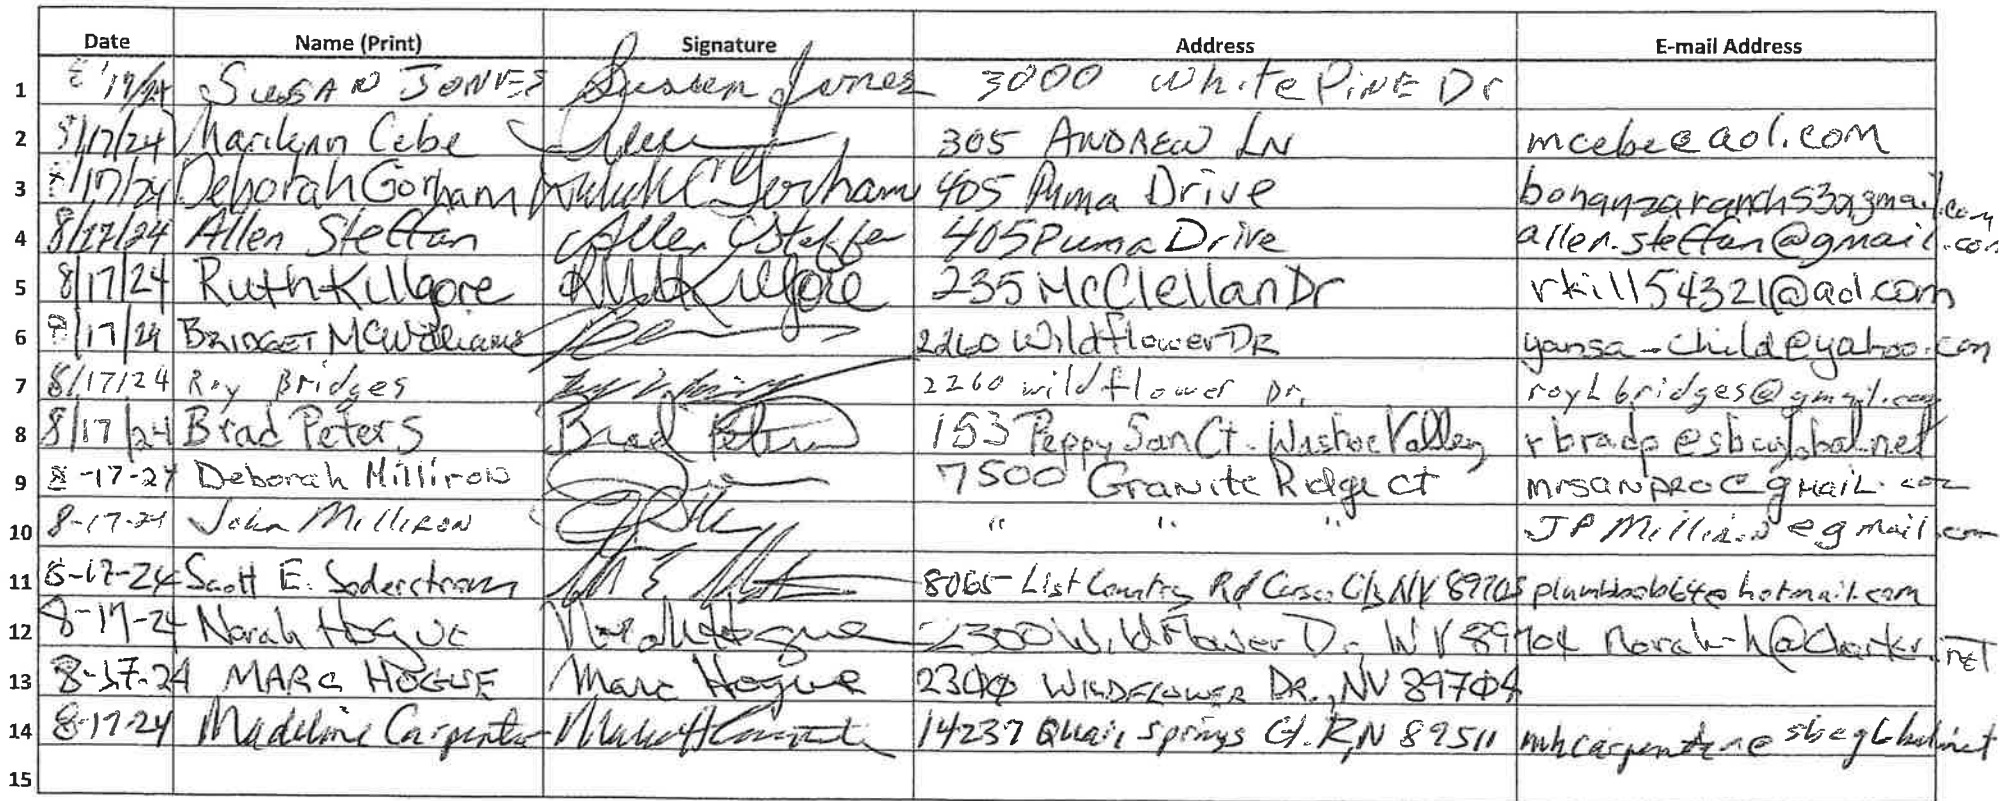 Date Name (Print) Signature Address E-mail Address
1 8/17/24 SUSAN JONES Susan Jones 3000 White PINE Dr
2 8/17/24 Marilynn Cebe 305 ANDREW LN mcebe@aol.com
3 8/17/24 Deborah Gorham Deborah C Gorham 405 Puma Drive bonanzaranch53@gmail.com
4 8/17/24 Allen Steffan Allen C Steffan 405 Puma Drive allen.steffan@gmail.com
5 8/17/24 Ruth Killgore Ruth Killgore 235 McClellan Dr rkill54321@aol.com
6 8/17/24 BRIDGET MCWilliams 2260 Wildflower DR yansa-child@yahoo.com
7 8/17/24 Roy Bridges 2260 wildflower Dr. roylbridges@gmail.com
8 8/17/24 Brad Peters Brad Peters 153 Peppy San Ct. Washoe Valley rbradp@sbcglobal.net
9 8-17-24 Deborah Milliron 7500 Granite Ridge ct mrsanpro@gmail.com
10 8-17-24 John MILLIRON " " " JPMilliron@gmail.com
11 8-17-24 Scott E. Soderstrom 8065 List Country Rd Carson City NV 89703 @hotmail.com
12 8-17-24 Norah Hogue Norah Hogue 2300 Wildflower Dr, WV 89704 norah-h@charter.net
13 8-17-24 MARC HOGUE Marc Hogue 2300 WILDFLOWER DR., NV 89704
14 8-17-24 Madeline Carpenter 14237 Quail Springs Ct. R,N 89511 mhcarpenter@sbcglobal.net
15